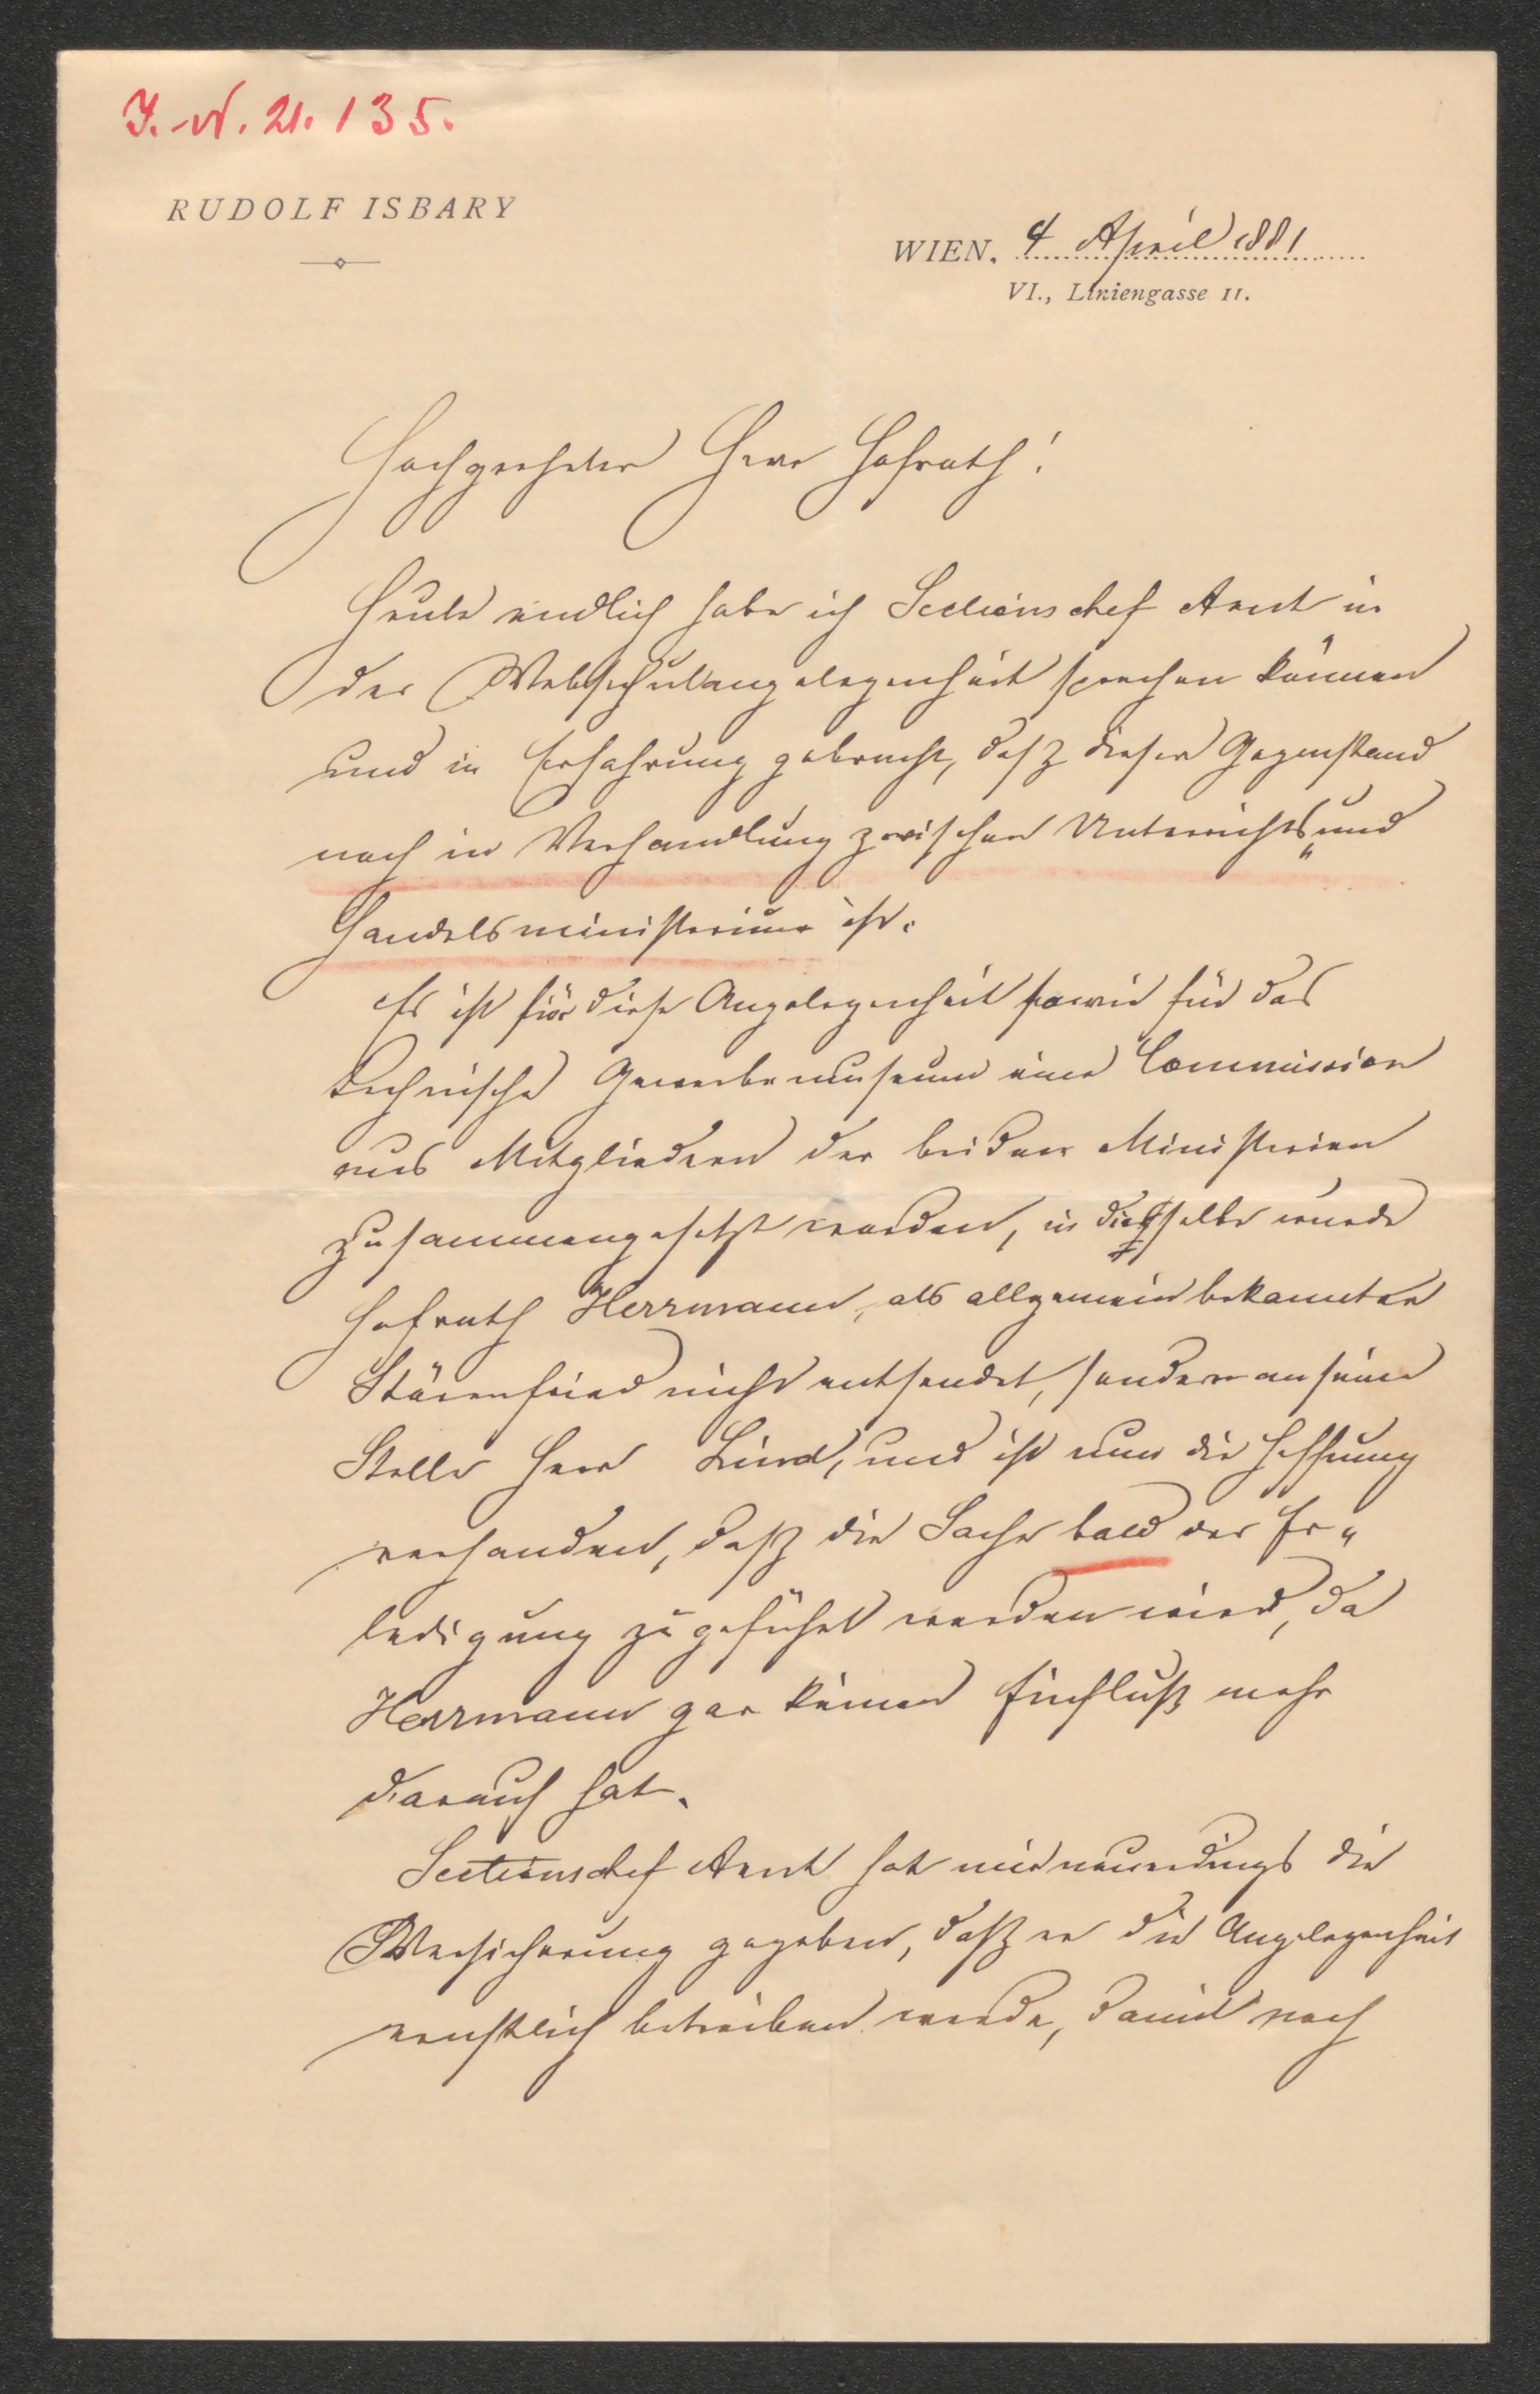 J.-N. 21.135.
RUDOLF ISBARY
WIEN, 4 April 1881
VI., Liniengasse 11.
Hochgeehrter Herr Hofrath!
Heute endlich habe ich Sectionschef Arnt in
der Webschulangelegenheit sprechen können
und in Erfahrung gebracht, daß dieser Gegenstand
noch in Verhandlung zwischen Unterrichts- und
Handelsministerium ist.
Es ist für diese Angelegenheit sowie für das
technische Gewerbemuseum eine Commission
aus Mitgliedern der beiden Ministerien
zusammengesetzt worden, in dieselbe wurde
Hofrath Herrmann, als allgemein bekannter
Störenfried nicht entsendet, sondern an seine
Stelle Herr Lind, und ist nun die Hoffnung
vorhanden, daß die Sache bald der Er-
ledigung zugeführt werden wird, da
Herrmann gar keinen Einfluß mehr
darauf hat.
Sectionschef Arnt hat mir neuerdings die
Versicherung gegeben, daß er die Angelegenheit
ernstlich betreiben werde, damit noch